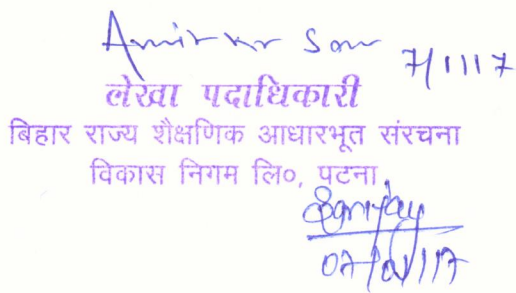 Amit Kr Son 7/1/17
लेखा पदाधिकारी
बिहार राज्य शैक्षणिक आधारभूत संरचना
विकास निगम लि०, पटना
Sanjay
07/01/17